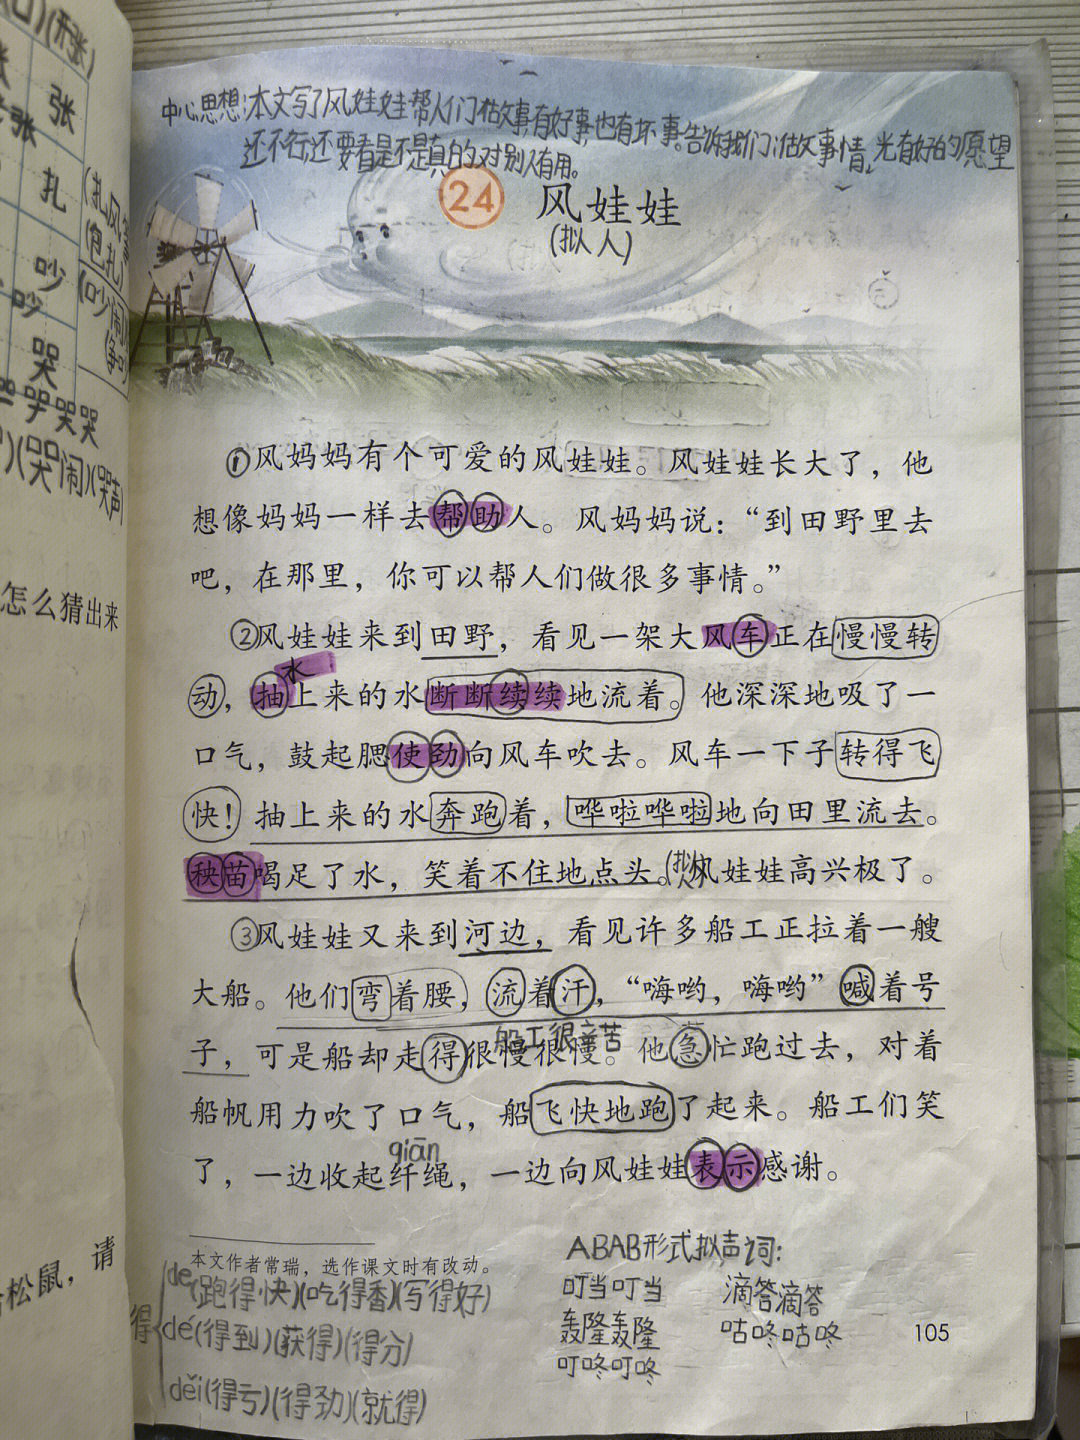 中心思想:本文写了风娃娃帮人们做故事,有好事也有坏事。告诉我们:做故事情,光有好的愿望
还不行,还要看是不是真的对别人有用。
24 风娃娃
(拟人)
①风妈妈有个可爱的风娃娃。风娃娃长大了，他
想像妈妈一样去帮助人。风妈妈说：“到田野里去
吧，在那里，你可以帮人们做很多事情。”
②风娃娃来到田野，看见一架大风车正在慢慢转
水
动，抽上来的水断断续续地流着。他深深地吸了一
口气，鼓起腮使劲向风车吹去。风车一下子转得飞
快！抽上来的水奔跑着，哗啦哗啦地向田里流去。
秧苗喝足了水，笑着不住地点头。(拟人)风娃娃高兴极了。
③风娃娃又来到河边，看见许多船工正拉着一艘
大船。他们弯着腰，流着汗，“嗨哟，嗨哟”喊着号
船工很辛苦
子，可是船却走得很慢很慢。他急忙跑过去，对着
船帆用力吹了口气，船飞快地跑了起来。船工们笑
qiān
了，一边收起纤绳，一边向风娃娃表示感谢。
本文作者常瑞，选作课文时有改动。
得
de(跑得快)(吃得香)(写得好)
dé(得到)(获得)(得分)
děi(得亏)(得劲)(就得)
ABAB形式拟声词:
叮当叮当 滴答滴答
轰隆轰隆 咕咚咕咚
叮咚叮咚
105
(形张)
张
扎
吵
哭
哭哭哭
(哭闹)(哭声)
(包扎)
(吵闹)
怎么猜出来
松鼠，请